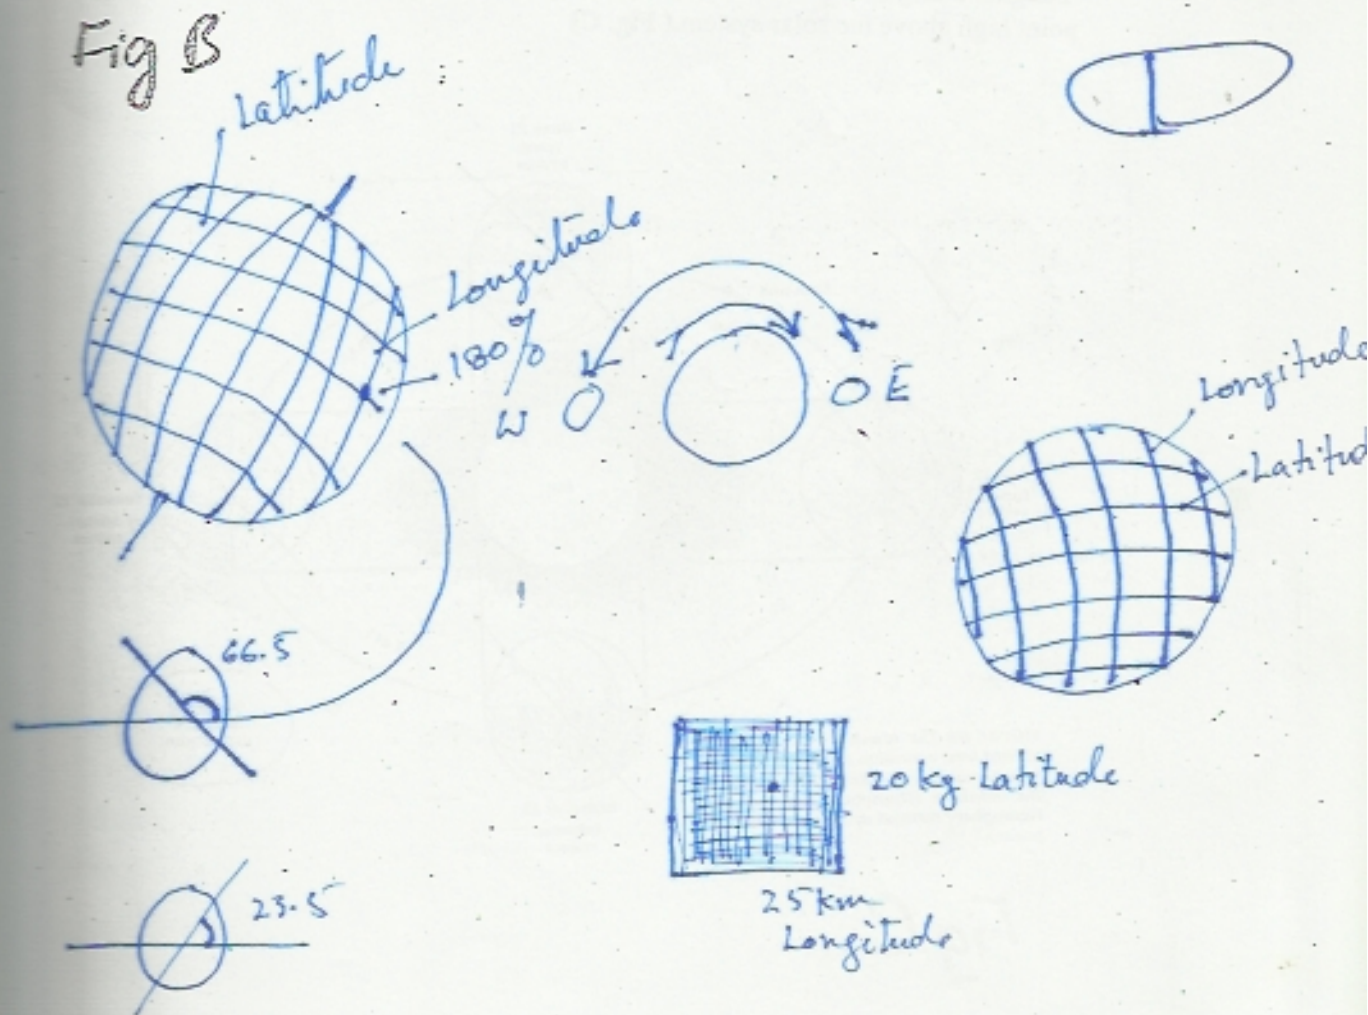 Fig B
Latitude
Longitude
180%
W
E
Longitude
Latitud
66.5
20 kg Latitude
23.5
25 km
Longitude